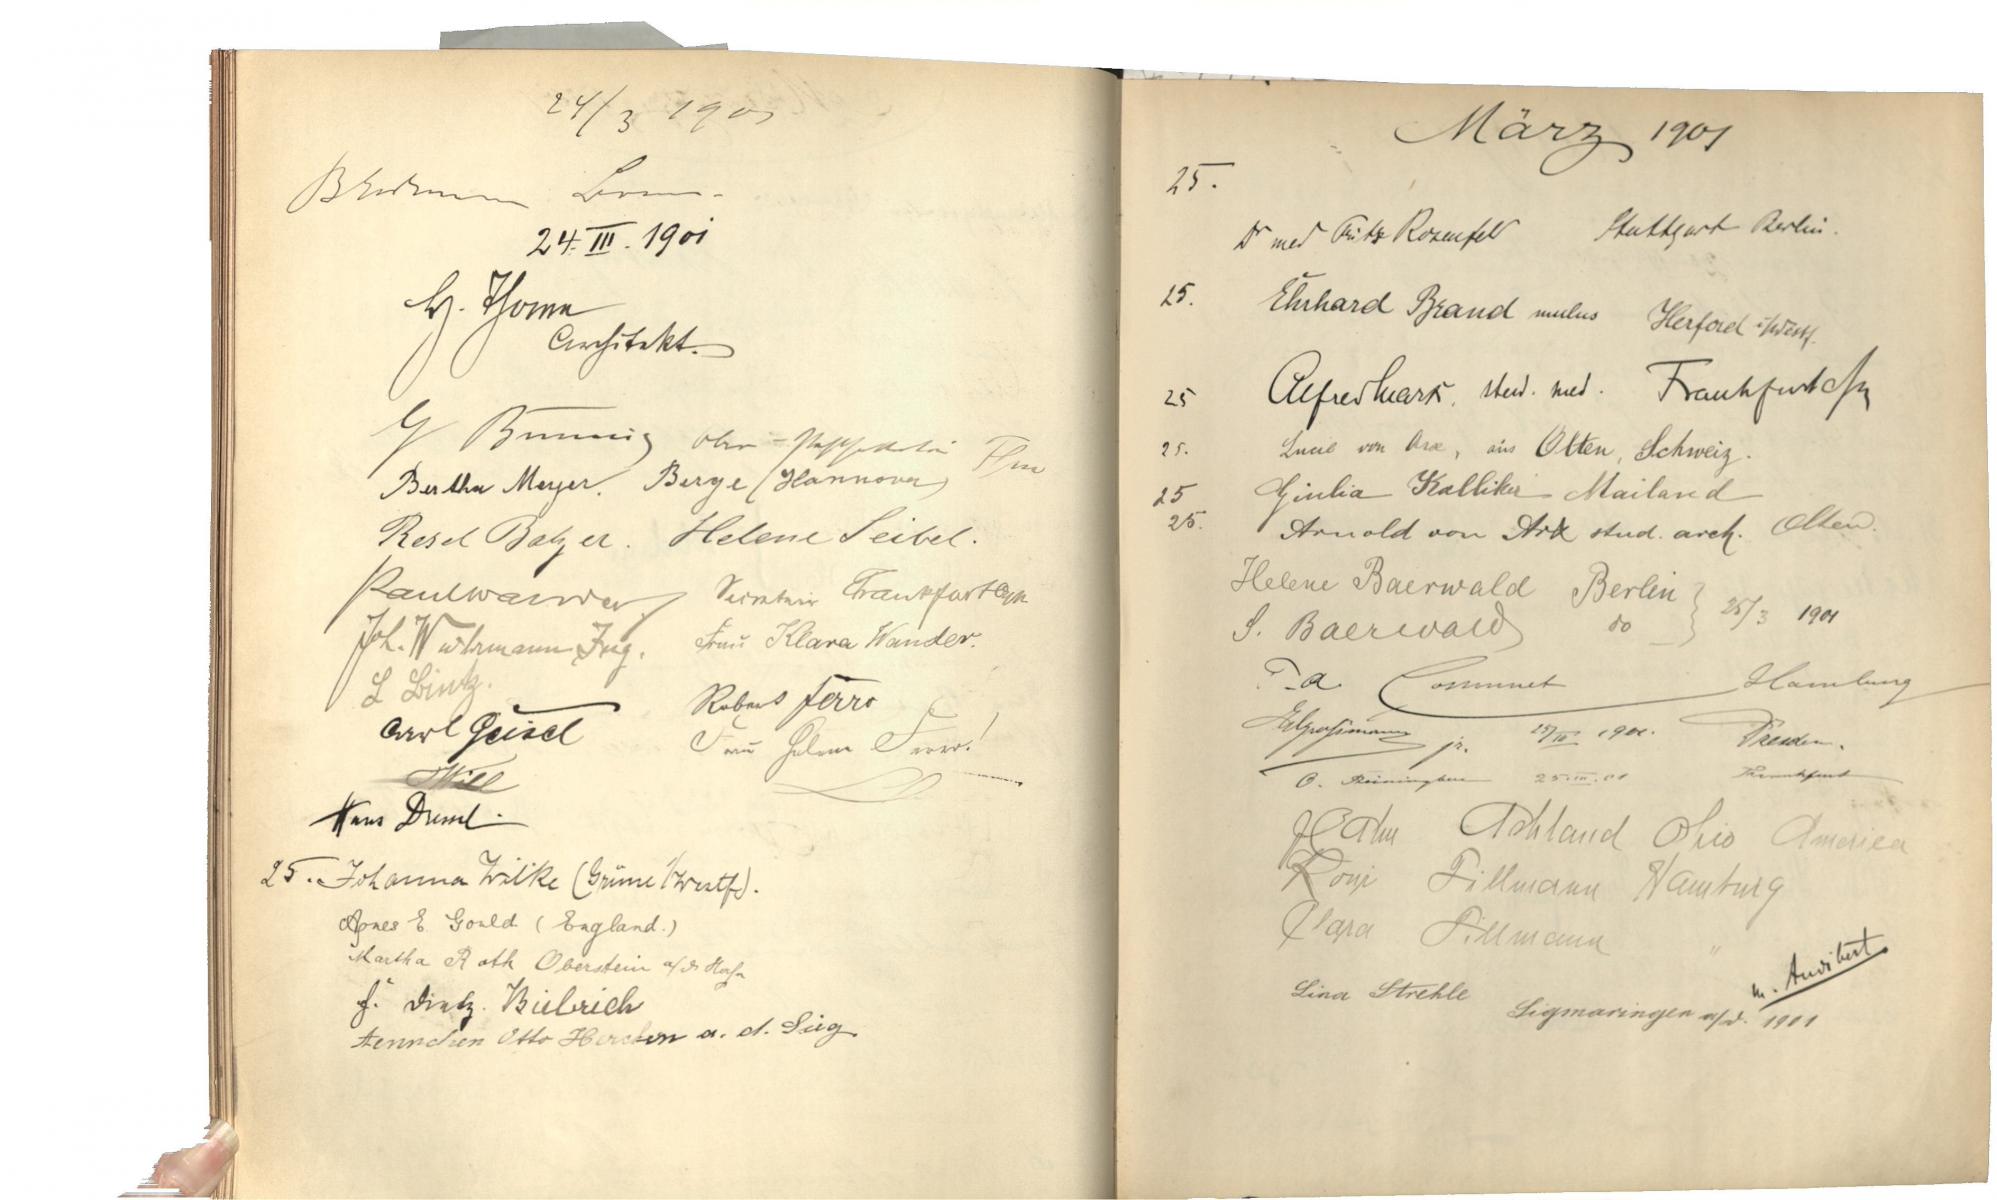 24/3 1901
24. III. 1901
H. Thoma
Architekt.
G
Bertha Meyer. Berge (Hannover)
Resel Balzer. Helene Seibel.
Paul Wander Secretair Frankfurt
Joh. Wuhrmann Ing. Frau Klara Wander.
L Lintz.
Robert Ferro
Carl Geisel
Frau Helene Ferro!
Will
Hans Dressel.
25. Johanna Wilke (Grüne i/Westf.).
Agnes E. Gould (England.)
Martha Roth Oberstein a/d Nahe
F. Dintz. Biebrich
Aennchen Otto Herchen a. d. Sieg.
März 1901
25.
Dr med Fritz Rosenfeld Stuttgart Berlin.
25. Ehrhard Brand mulus Herford i/Westf.
25 Alfred Marx, stud. med. Frankfurt a/M
25. Lucie von Arx, aus Olten, Schweiz.
25 Giulia Kalliker Mailand
25. Arnold von Arx stud. arch. Olten.
Helene Baerwald Berlin
S. Baerwald do } 25/3 1901
Hamburg
jr. 25/III 1901. Dresden.
O. 25.III.01 Frankfurt
Ashland Ohio America
Rosi Tillmann Hamburg
Clara Tillmann "
M. Audibert
Lina Strehle Sigmaringen a/D. 1901